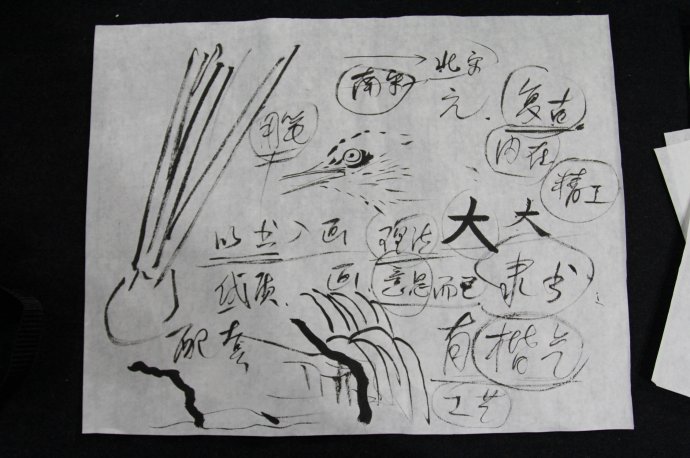 南宋 北宋
元. 复古
用笔
内在
精工
以书入画 理法 大 大
线质. 画. 意思而已 隶书
配套
有楷气
工艺